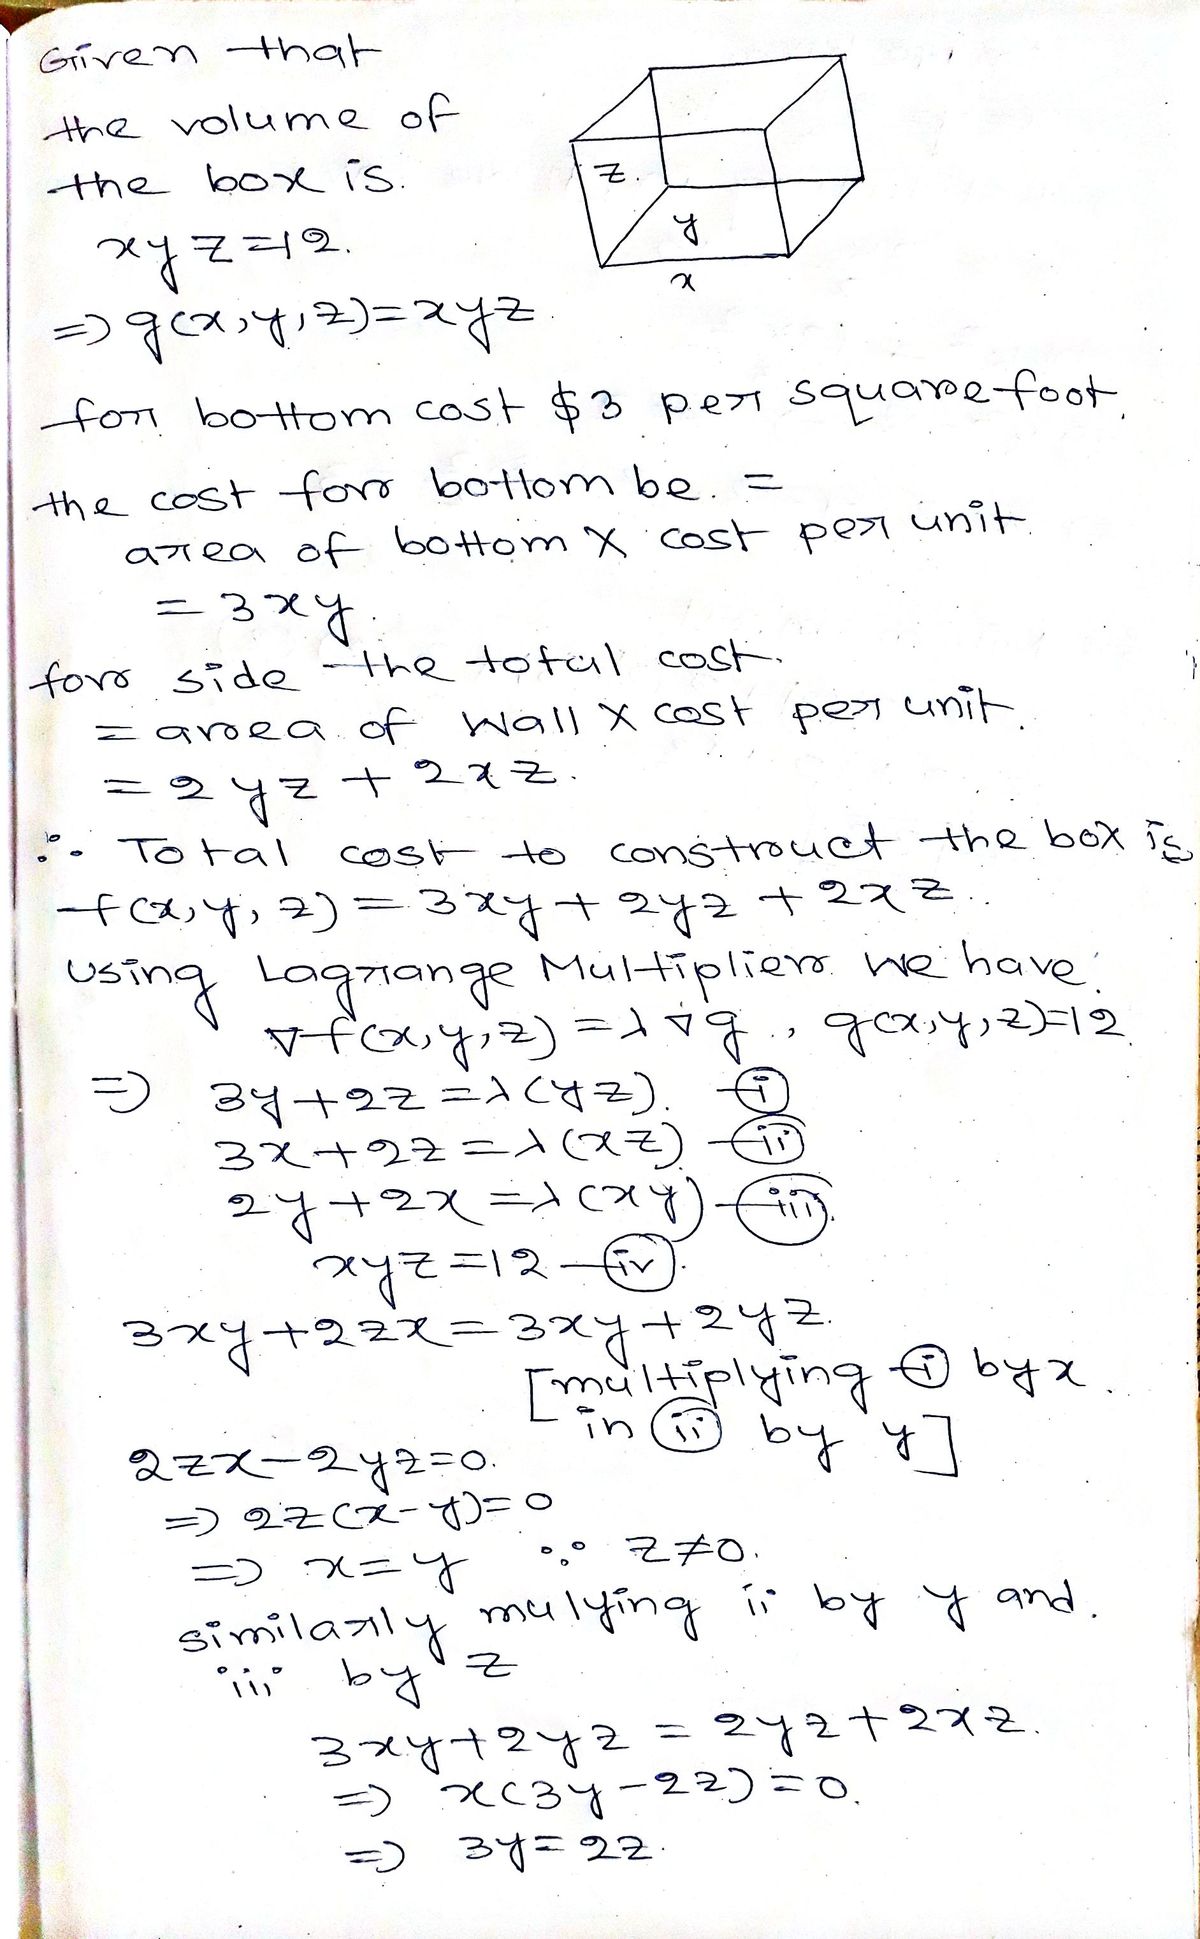 Given that
the volume of
the box is.
xyz=12.
z.
y
x
=> g(x,y,z)=xyz.
for bottom cost $3 per square foot.
the cost for bottom be. =
area of bottom X cost per unit.
= 3xy.
for side the total cost.
= area of wall X cost per unit.
= 2yz + 2xz.
∴ Total cost to construct the box is
f(x,y,z) = 3xy + 2yz + 2xz..
using Lagrange Multiplier we have.
∇f(x,y,z) = λ∇g., g(x,y,z)=12.
=> 3y+2z=λ(yz). — (i)
3x+2z=λ(xz) — (ii)
2y+2x=λ(xy) — (iii).
xyz=12 — (iv).
3xy+2zx=3xy+2yz.
[multiplying (i) by x.
in (ii) by y]
2zx-2yz=0.
=> 2z(x-y)=0
=> x=y ∵ z≠0.
similarly mulying ii by y and.
iii by z
3xy+2yz = 2yz+2xz.
=> x(3y-2z)=0.
=> 3y=2z.